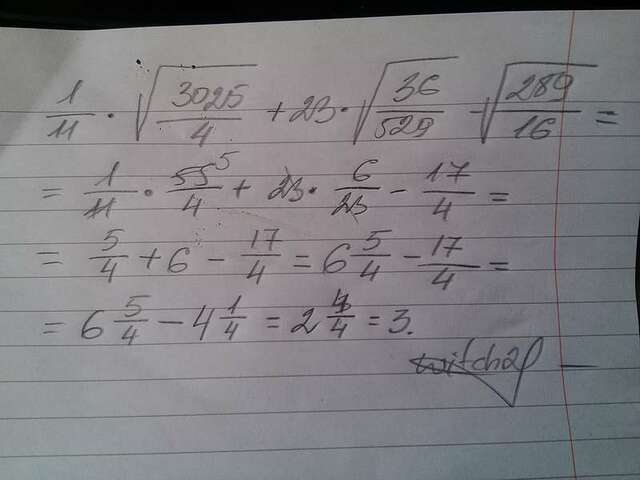 1/11 · √(3025/4) + 23 · √(36/529) - √(289/16) =
= 1/11 · 55⁵/4 + 23 · 6/23 - 17/4 =
= 5/4 + 6 - 17/4 = 6 5/4 - 17/4 =
= 6 5/4 - 4 1/4 = 2 4/4 = 3.